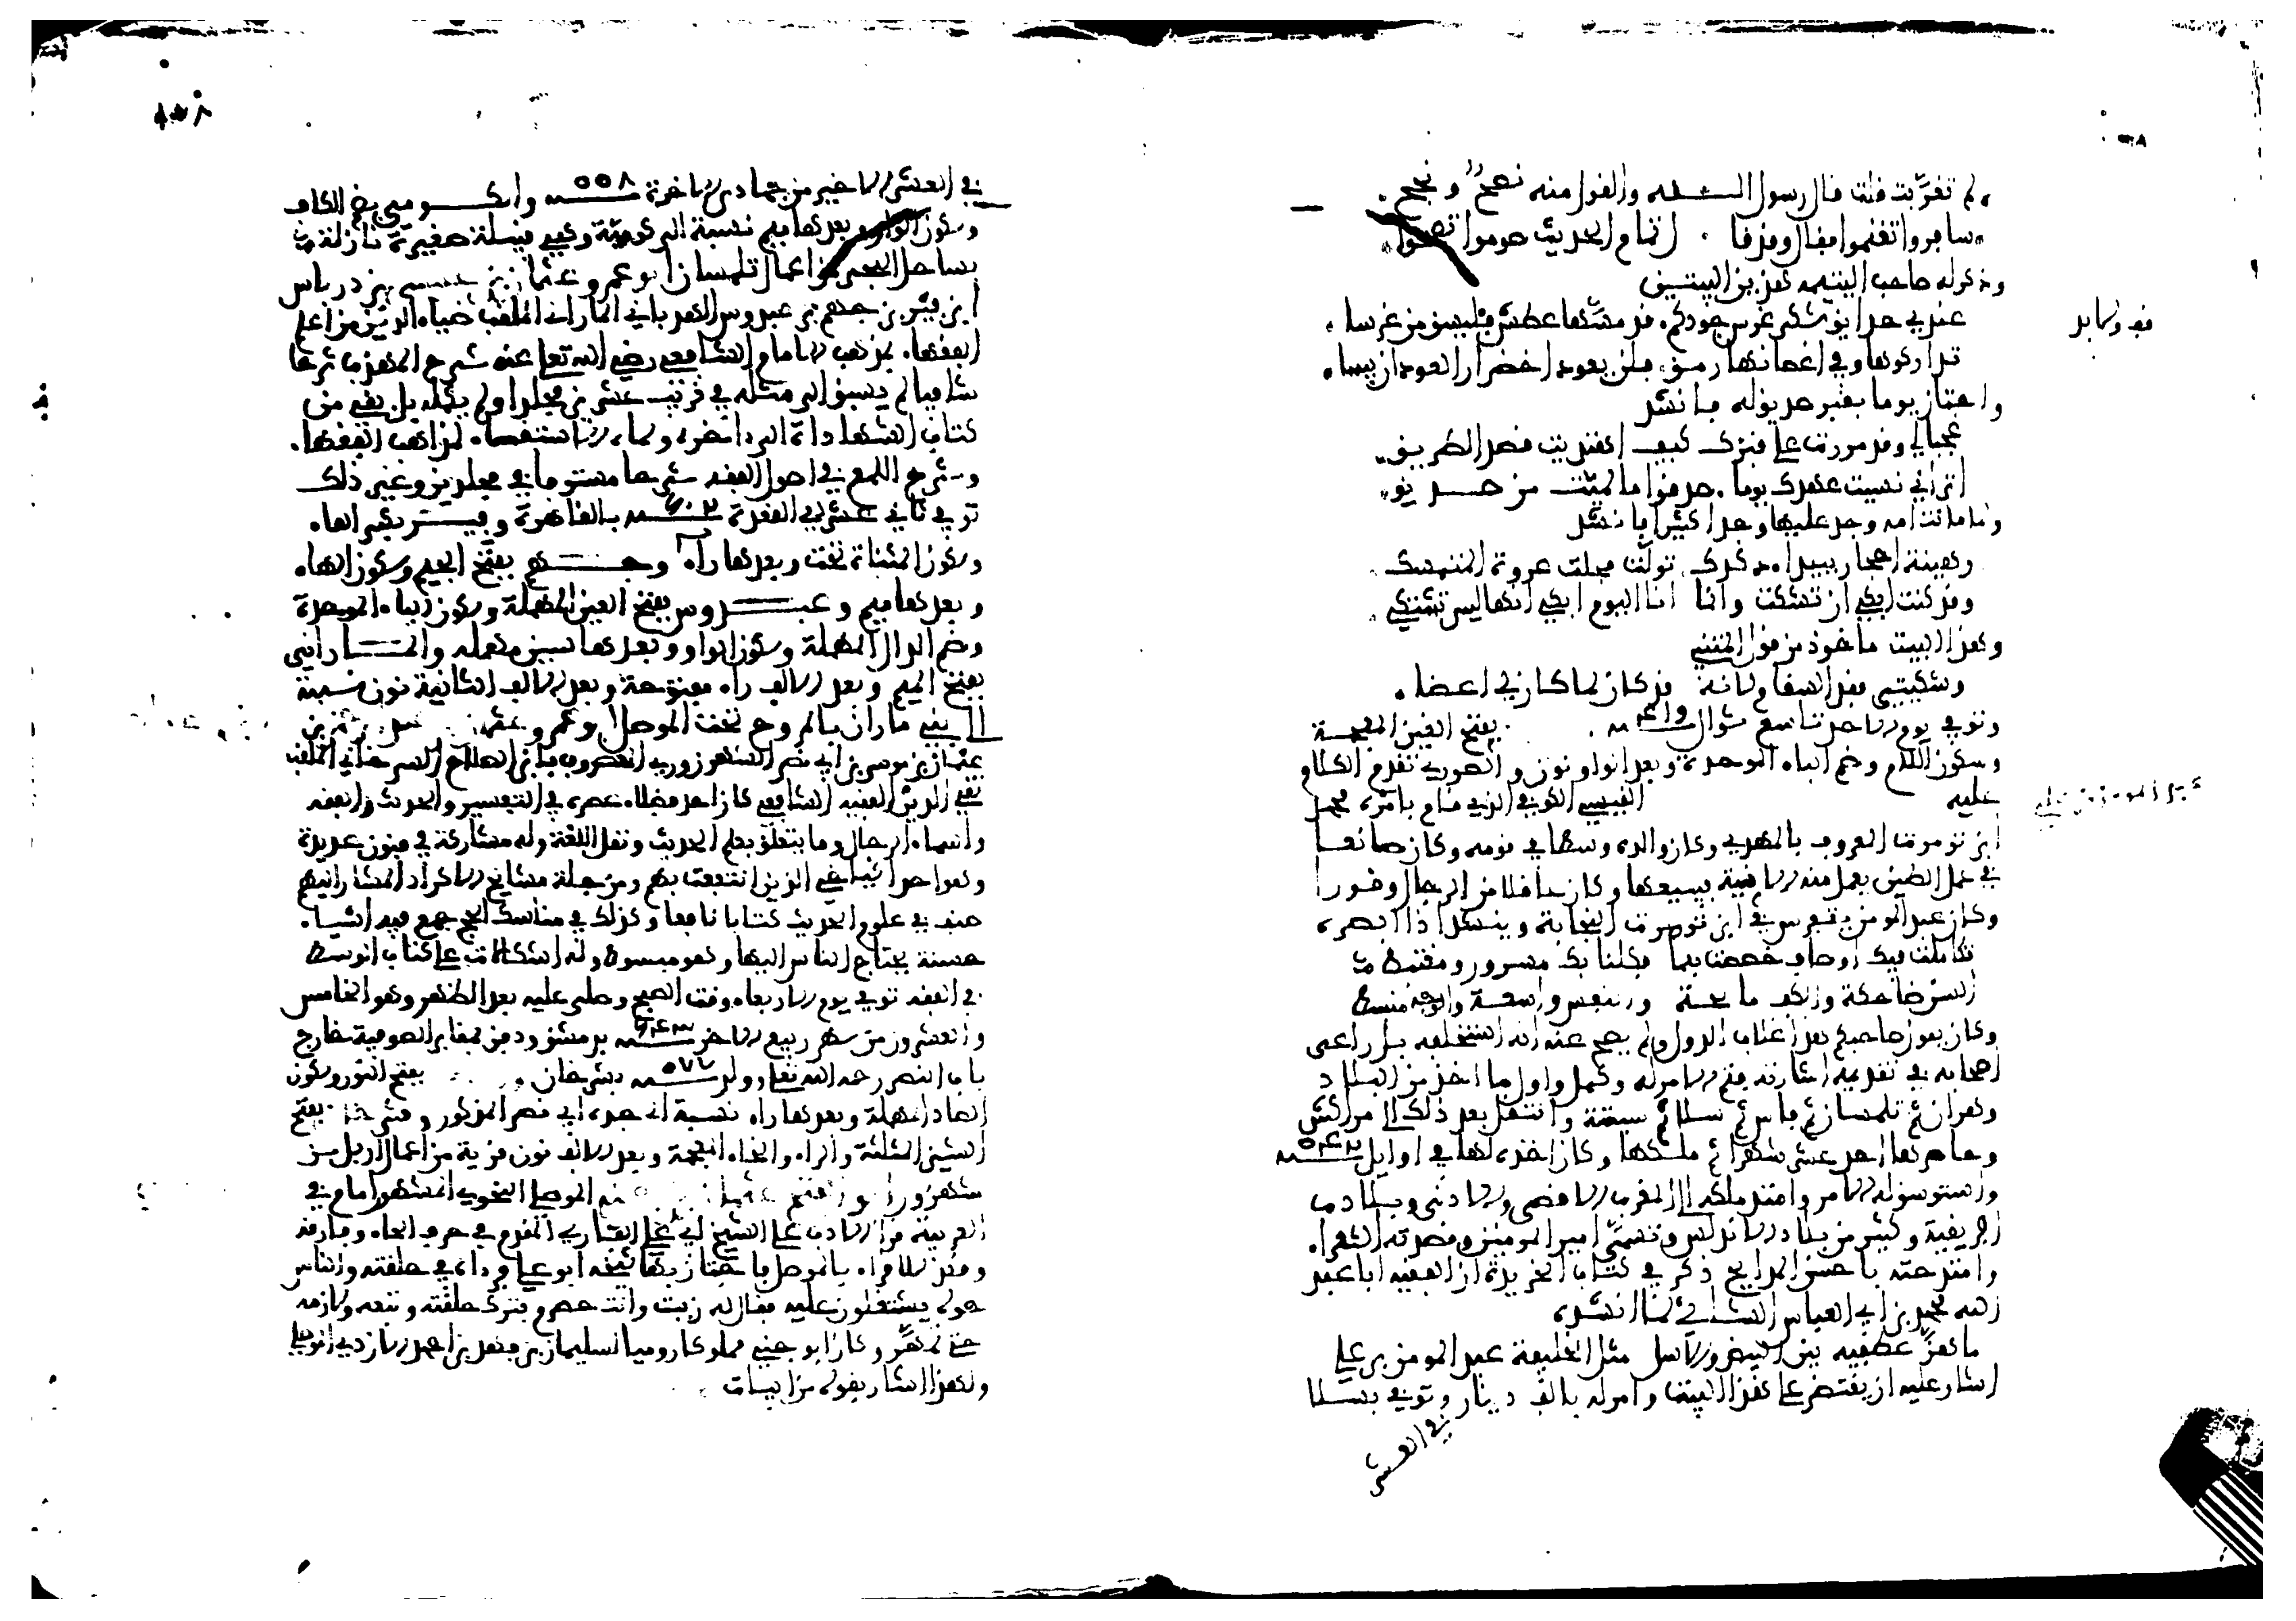 لم تغرّبت فلت فال رسول الله والفول منه نصح ونجح
سافروا تغنموا فقال وقد فا . اتمام الحديث صوموا تصحوا
وذكر له صاحب اليتيمة هذين البيتين
عندي حدايق شكر غرس جودكم قد مسّها عطش فليسق من غرسا
تداركوها وفي اغصانها رمق فلن يعود اخضرار العود ان يبسا
واجتاز يوما بقبر صديق له فانشد
عجبا لي وقد مررت على قبرك كيف اهتديت قصد الطريق
اتراني نسيت عهدك يوما صدقوا ما لميّت من صديق
ولما ماتت امه وجد عليها وجدا كثيرا فانشد
رهينة احجار ببيداء دكدك تولت فحلت عروة المتمسك
وقد كنت ابكي ان تشكت وانما انا اليوم ابكي انها ليس تشتكي
وهذا البيت ماخوذ من قول المتنبي
وشكيتي فقد السقام لانه قد كان لما كان لي اعضاء
وتوفي يوم الاحد تاسع شوال بفتح الغين المعجمة
وسكون اللام وضم الباء الموحدة وبعد الواو نون والصوري تقدم الكلام
عليه القيسي الكومي الذي قام بامره محمد
ابن تومرت المعروف بالمهدي وكان والده وسطا في قومه وكان صانعا
في عمل الطين يعمل منه الانية فيبيعها وكان عاقلا من الرجال وقورا
وكان عبد المومن يتفرس فيه ابن تومرت النجابة وينشد اذا ابصره
تكاملت فيك اوصاف خصصت بها فكلنا بك مسرور ومغتبط
السن ضاحكة والكف مانحة والنفس واسعة والوجه منبسط
وكان يقول صاحبكم هذا غلاب الدول ولم يصح عنه انه استخلفه بل راعى
اصحابه في تقديمه اشارته فتم الامر له وكمل واول ما اخذ من البلاد
وهران ثم تلمسان ثم فاس ثم سلا ثم سبتة وانتقل بعد ذلك الى مراكش
وحاصرها احد عشر شهرا ثم ملكها وكان اخذه لها في اوايل ٥٤٢
واستوسق له الامر وامتد ملكه الى المغرب الاقصى والادنى وبلاد
افريقية وكثير من بلاد الاندلس وتسمى امير المومنين وقصدته الشعراء
وامتدحته باحسن المدايح ذكر في كتاب الخريدة ان الفقيه ابا عبد
الله محمد بن ابي العباس التيفاشي لما انشده
ما هزّ عطفيه بين البيض والاسل مثل الخليفة عبد المومن بن علي
اشار عليه ان يقتصر على هذا البيت وامر له بالف دينار وتوفي بسلا
في العشر
في العشر الاخير من جمادى الاخرة ٥٥٨ والكومي بضم الكاف
وسكون الواو وبعدها ميم نسبة الى كومية وهي قبيلة صغيرة نازلة
بساحل البحر من اعمال تلمسان ابو عمرو عثمان بن عيسى بن درباس
ابن فير بن جهم بن عبدوس الهدباني الماراني الملقب ضياء الدين من اعلم
الفقهاء بمذهب الامام الشافعي رضي الله تعلى عنه شرح المهذب شرحا
شافيا لم يسبق الى مثله في قريب عشرين مجلدا ولم يكمله بل بقي من
كتاب الشهادات الى اخره وسماه الاستقصاء لمذاهب الفقهاء
وشرح اللمع في اصول الفقه شرحا مستوفا في مجلدين وغير ذلك
توفي ثاني عشر ذي القعدة ٦٠٢ بالقاهرة وفير بكسر الفاء
وسكون المثناة تحت وبعدها راء وجهم بفتح الجيم وسكون الهاء
وبعدها ميم وعبدوس بفتح العين المهملة وسكون الباء الموحدة
وضم الدال المهملة وسكون الواو وبعدها سين مهملة والماراني
بفتح الميم وبعد الالف راء مفتوحة وبعد الالف الثانية نون نسبة
الى بني ماران بالمروج تحت الموصل ابو عمرو عثمان بن عبد الرحمن بن
عثمان بن موسى بن ابي نصر الشهرزوري المعروف بابن الصلاح الشرخاني الملقب
تقي الدين الفقيه الشافعي كان احد فضلاء عصره في التفسير والحديث والفقه
واسماء الرجال وما يتعلق بعلم الحديث ونقل اللغة وله مشاركة في فنون عديدة
وهو احد اشياخي الذين انتفعت بهم ومن جملة مشايخ الاكراد المشار اليهم
صنف في علوم الحديث كتابا نافعا وكذلك في مناسك الحج جمع فيه اشياء
حسنة يحتاج الناس اليها وهو مبسوط وله اشكالات على كتاب الوسيط
في الفقه توفي يوم الاربعاء وقت الصبح وصلي عليه بعد الظهر وهو الخامس
والعشرون من شهر ربيع الاخر ٦٤٣ بدمشق ودفن بمقابر الصوفية خارج
باب النصر رحمه الله تعلى وولد ٥٧٧ بشرخان بفتح النون وسكون
الصاد المهملة وبعدها راء نسبة الى جده ابي نصر المذكور وشرخان بفتح
الشين المثلثة والراء والخاء المعجمة وبعد الالف نون قرية من اعمال اربل من
شهرزور ابو الفتح عثمان بن جني الموصلي النحوي المشهور امام في
العربية قرا الادب على الشيخ ابي علي الفارسي المقدم في حرف الحاء وفارقه
وقعد للاقراء بالموصل فاجتاز بها شيخه ابو علي فرءاه في حلقته والناس
حوله يشتغلون عليه فقال له زببت وانت حصرم فترك حلقته وتبعه ولازمه
حتى تمهّر وكان ابوه جني مملوكا روميا لسليمان بن فهد بن احمد الازدي الموصلي
ولهذا اشار بقوله من ابيات